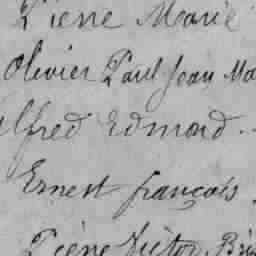 Pierre Marie
Olivier Paul Jean Ma
Alfred Edmond.
Ernest françois.
Pierre Victor, Bri